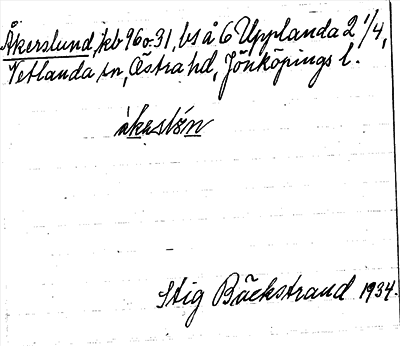 Åkerslund, kb 96 o. 31, bs å 6 Upplanda 2 1/4,
Vetlanda sn, Östra hd, Jönköpings l.
åkesløn
Stig Bäckstrand 1934.